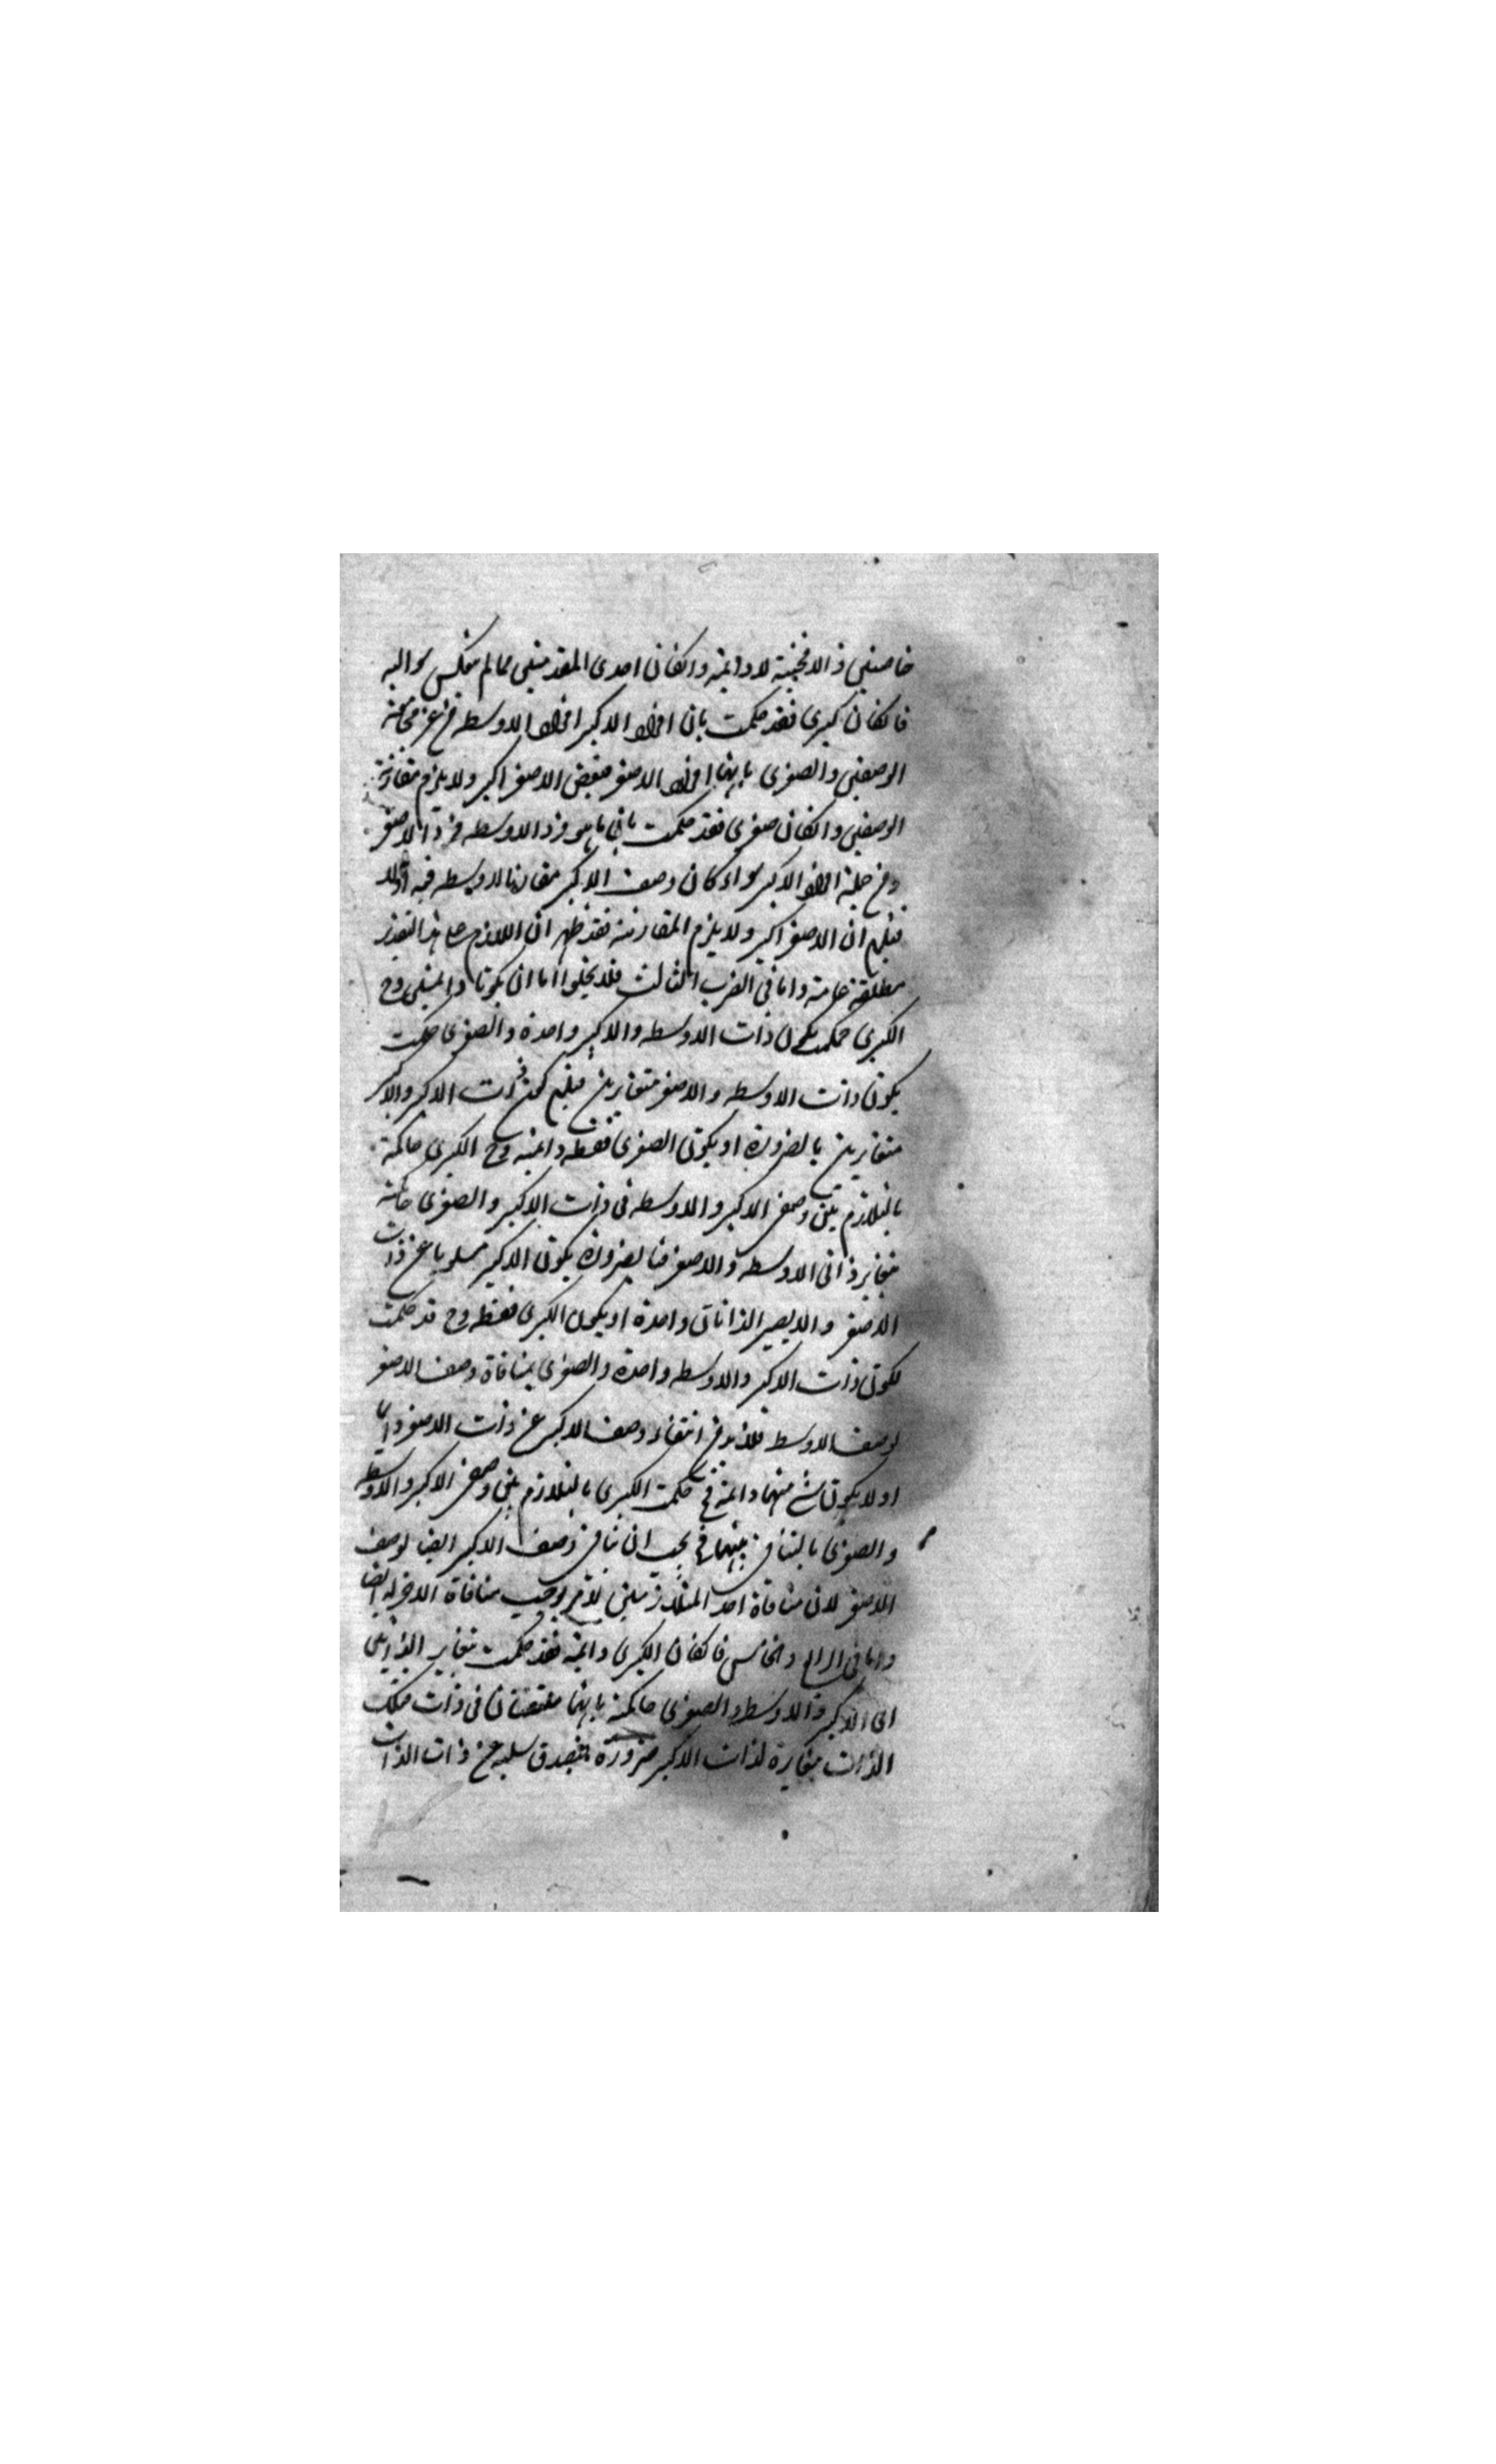 خاصتين والا فحينية لا دائمة وان كان احدى المقدمتين مما لم ينعكس سوالبه
فان كان كبرى فقد حكمت بان افراد الاكبر افراد الاوسط من غير
الوصفين والصغرى بانها افراد الاصغر فبعض الاصغر اكبر ولا يلزم مقارنة
الوصفين وان كان صغرى فقد حكمت بان ما هو فرد الاوسط فرد الاصغر
ومن جملة افراد الاكبر سواء كان وصف الاكبر مقارنا للاوسط فيه اولا
فيلزم ان الاصغر اكبر ولا يلزم المقارنة فقد ظهر ان اللازم على هذا التقدير
مطلقة عامة واما في الضرب الثالث فلا يخلوا اما ان يكونا دائمتين وح
الكبرى حكمت بكون ذات الاوسط والاكبر واحدة والصغرى حكمت
بكون ذات الاوسط والاصغر متغايرين فيلزم كون ذات الاكبر والاكبر
متغايرين بالضرورة او يكون الصغرى فقط دائمة وح الكبرى حاكمة
بالتلازم بين وصفى الاكبر والاوسط فى ذات الاكبر والصغرى حاكمة
بتغاير ذاتى الاوسط والاصغر فبالضرورة يكون الاكبر مسلوبا عن ذات
الاصغر والا يصير الذاتان واحدة او يكون الكبرى فقط وح قد حكمت
بكون ذات الاكبر والاوسط واحدة والصغرى بمنافاة وصف الاصغر
لوصف الاوسط فلا بد من انتفاء وصف الاكبر عن ذات الاصغر دائما
او لا يكون شئ منهما دائمة فح حكمت الكبرى بالتلازم بين وصفى الاكبر والاوسط
والصغرى بالتنافى بينهما فح يجب ان ينافى وصف الاكبر ايضا لوصف
الاصغر لان منافاة احد المتلازمين لامر يوجب منافاة الاخر له ايضا
واما في الرابع والخامس فان كان الكبرى دائمة فقد حكمت بتغاير الذاتين
اى الاكبر والاوسط والصغرى حاكمة بانهما ملتقيان فى ذات فتلك
الذات مغايرة لذات الاكبر ضرورة فيصدق سلبه عن ذات الذات